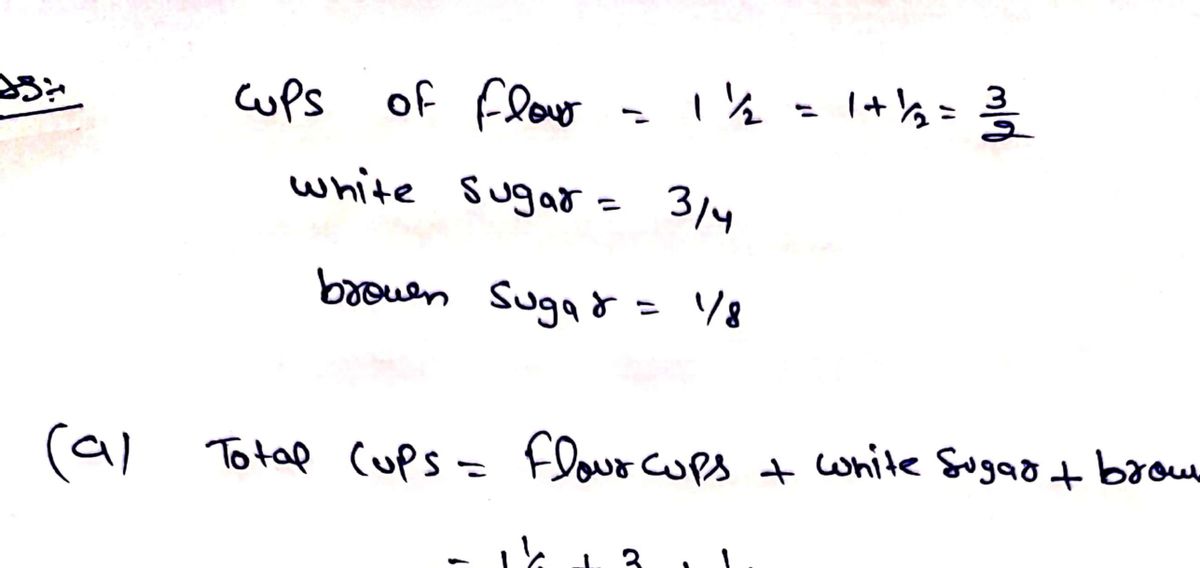 Cups of flour = 1 1/2 = 1 + 1/2 = 3/2
white sugar = 3/4
brouen sugar = 1/8
(a) Total Cups = flour cups + white sugar + brow